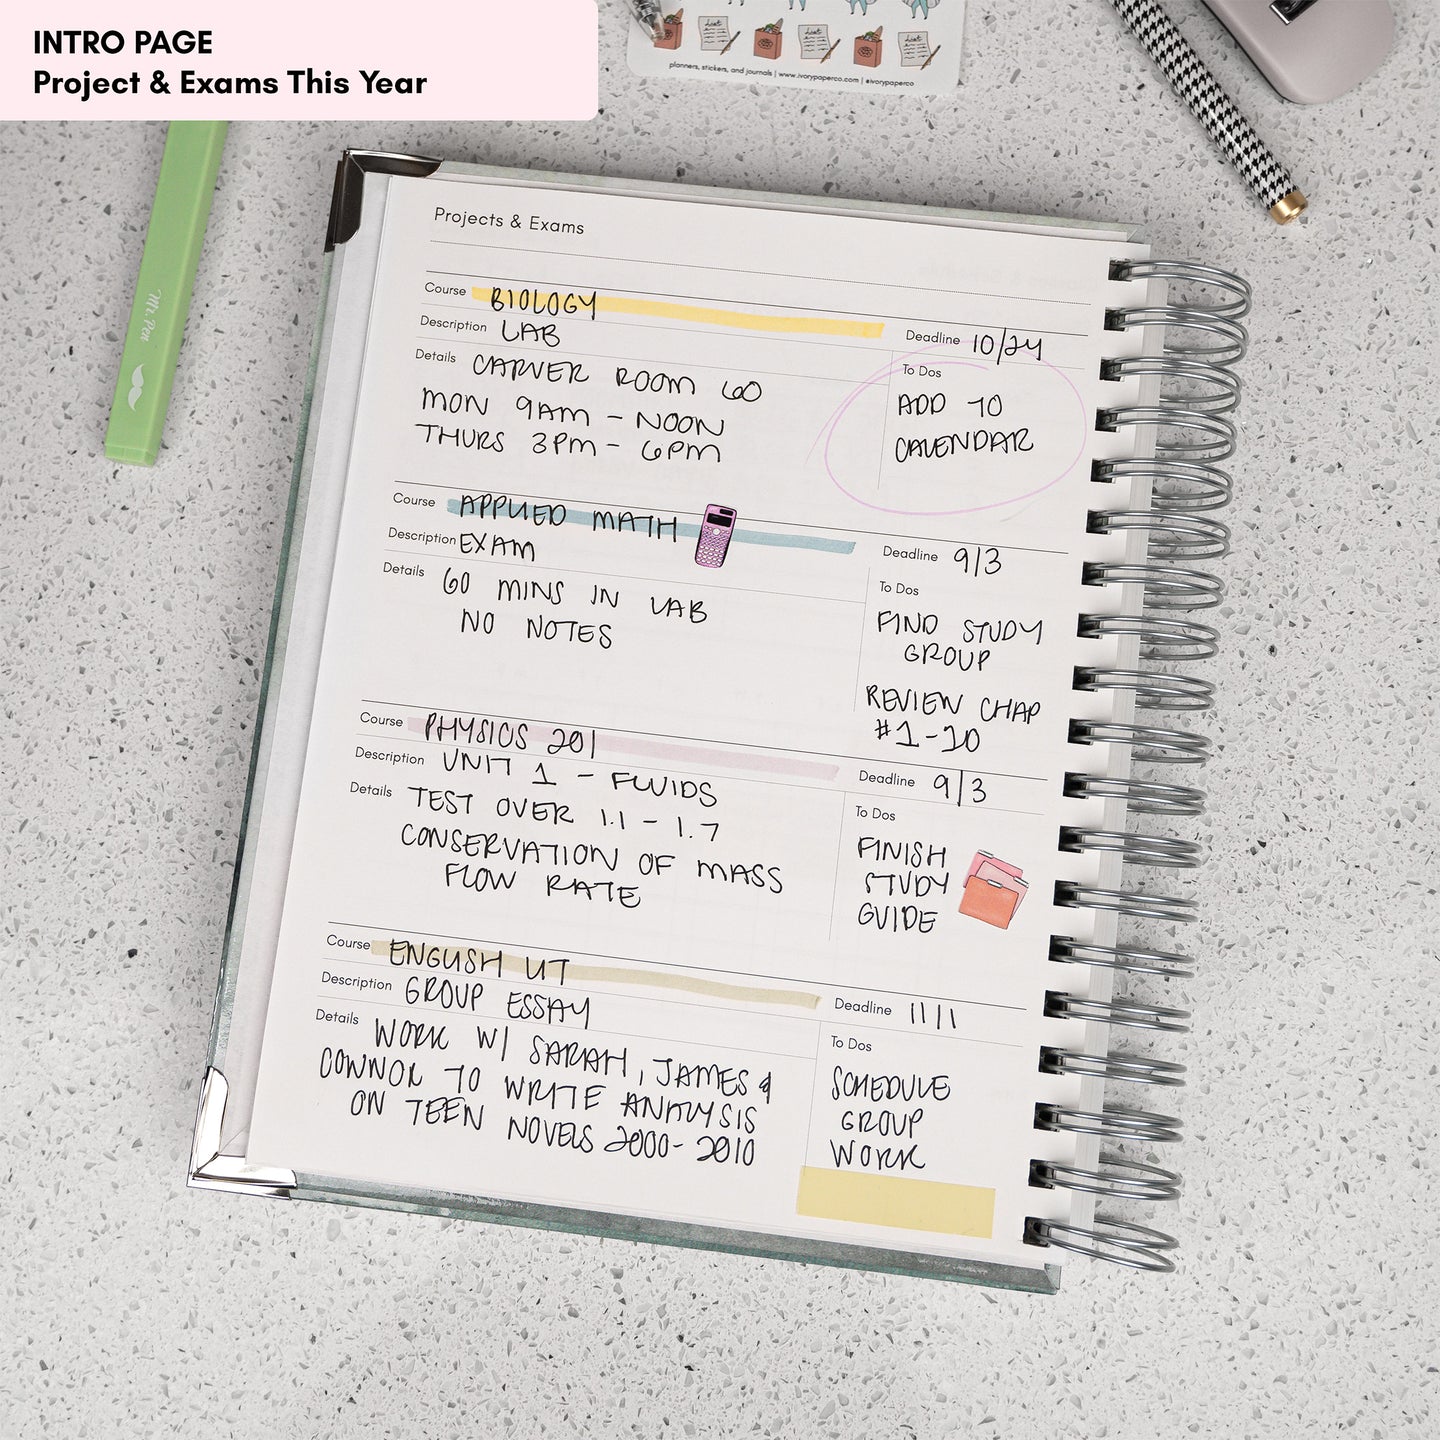 INTRO PAGE
Project & Exams This Year
planners, stickers, and journals | www.ivorypaperco.com | @ivorypaperco
Mr. Pen
Projects & Exams
Course BIOLOGY
Description LAB
Deadline 10/24
Details CARVER ROOM 60
MON 9AM - NOON
THURS 3PM - 6PM
To Dos
ADD TO
CALENDAR
Course APPLIED MATH
Description EXAM
Deadline 9/3
Details 60 MINS IN LAB
NO NOTES
To Dos
FIND STUDY
GROUP
REVIEW CHAP
#1-10
Course PHYSICS 201
Description UNIT 1 - FLUIDS
Deadline 9/3
Details TEST OVER 1.1 - 1.7
CONSERVATION OF MASS
FLOW RATE
To Dos
FINISH
STUDY
GUIDE
Course ENGLISH LIT
Description GROUP ESSAY
Deadline 11/1
Details WORK W/ SARAH, JAMES &
CONNOR TO WRITE ANALYSIS
ON TEEN NOVELS 2000-2010
To Dos
SCHEDULE
GROUP
WORK